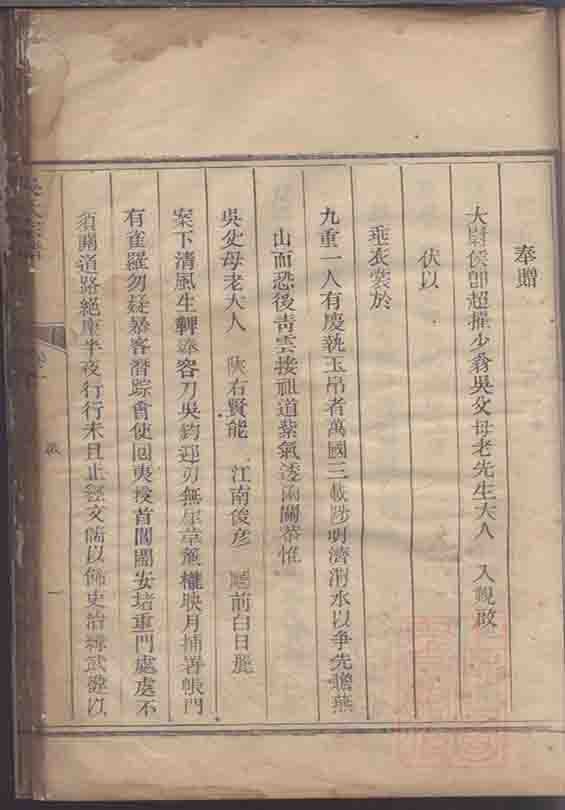 奉贈
大尉侯即超擢少翁吳父母老先生大人 入覲啟
伏以
垂衣裳於
九重一人有慶執玉帛者萬國三載陟明濟淯水以争先瞻燕
山而恐後青雲接祖道紫氣逶函關恭惟
吳父母老大人 陝右賢能 江南俊彦 廳前白日麗
案下清風生 客刀吳鈞迎刃無 映月捕署帳門
有雀羅勿疑暴客潛踪會使回夷授首閭閻安堵重門處處不
須關道路絕塵半夜行行未且止經文儒以佛史治緯武 以
一